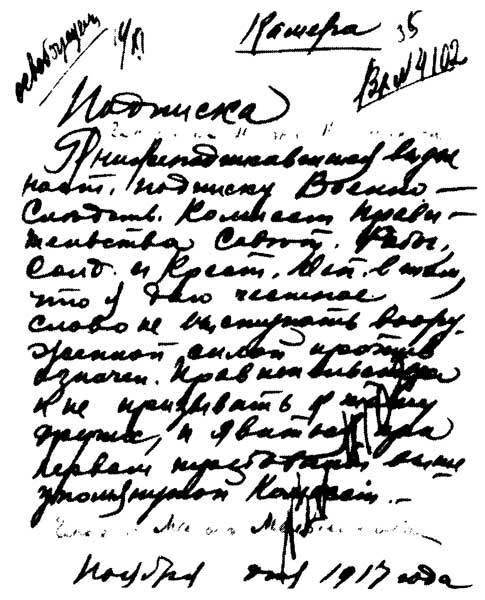 освобожден 14/XI Камера 35
Вх № 4102
Подписка
Я нижеподписавшийся выда
наст. подписку Военно—
Следств. Комисси прави—
тельства Совет. Рабоч.,
Солд. и Крест. Деп. в том,
что я даю честное
слово не выступать воору
женной силой против
означен. Правительства
и не призывать к тому
других, и явиться при
первом требовании выше
упомянутой Комисси.—
Ноября дня 1917 года